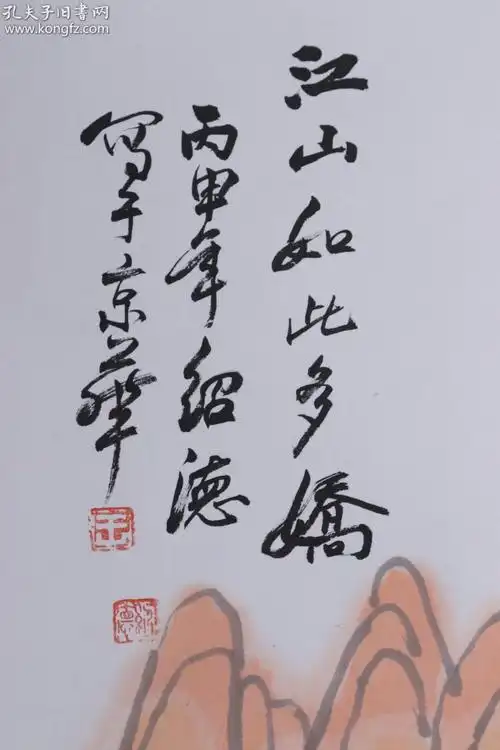 孔夫子旧书网
www.kongfz.com
江山如此多嬌
丙申年绍德
写于京华
王
绍德